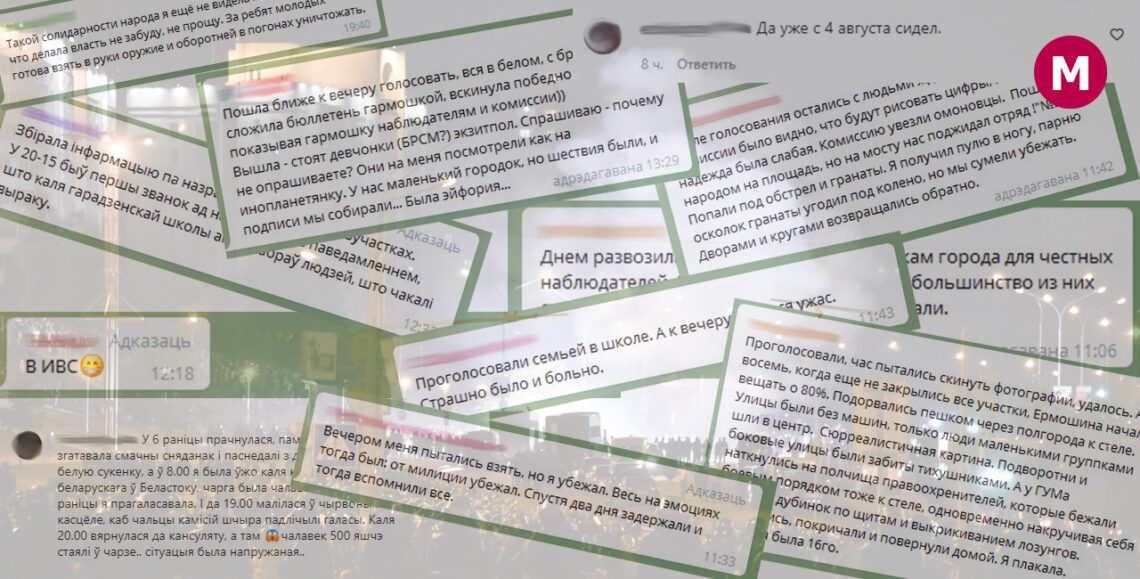 Такой солидарности народа я ещё не видела
что делала власть не забуду, не прощу. За ребят молодых
готова взять в руки оружие и оборотней в погонах уничтожать.
19:40
Да уже с 4 августа сидел.
8 ч. Ответить
M
Пошла ближе к вечеру голосовать, вся в белом, с бр
сложила бюллетень гармошкой, вскинула победно
показывая гармошку наблюдателям и комиссии))
Вышла - стоят девчонки (БРСМ?) экзитпол. Спрашиваю - почему
не опрашиваете? Они на меня посмотрели как на
инопланетянку. У нас маленький городок, но шествия были, и
подписи мы собирали... Была эйфория...
адрэдагавана 13:29
ле голосования остались с людьми
миссии было видно, что будут рисовать цифры,
надежда была слабая. Комиссию увезли омоновцы. Пош
народом на площадь, но на мосту нас поджидал отряд !"№
Попали под обстрел и гранаты. Я получил пулю в ногу, парню
осколок гранаты угодил под колено, но мы сумели убежать.
Дворами и кругами возвращались обратно.
адрэдагавана 11:42
Збірала інфармацыю па назра
У 20-15 быў першы званок ад н
што каля гарадзенскай школы а
выраку.
участках.
паведамленнем,
бораў людзей, што чакалі
Адказаць
Днем развозил
наблюдателей
кам города для честных
большинство из них
али.
11:06
Адказаць
В ИВС😁
12:18
Проголосовали семьей в школе. А к вечеру
ся ужас.
Страшно было и больно.
11:43
Проголосовали, час пытались скинуть фотографии, удалось.
восемь, когда еще не закрылись все участки, Ермошина нача
вещать о 80%. Подорвались пешком через полгорода к стеле.
Улицы были без машин, только люди маленькими группками
шли в центр. Сюрреалистичная картина. Подворотни и
боковые улицы были забиты тихушниками. А у ГУМа
наткнулись на полчища правоохренителей, которые бежали
боевым порядком тоже к стеле, одновременно накручивая себя
дубинок по щитам и выкрикиванием лозунгов.
ись, покричали и повернули домой. Я плакала.
а была 16го.
Вечером меня пытались взять, но я убежал. Весь на эмоциях
тогда был; от милиции убежал. Спустя два дня задержали и
тогда вспомнили все.
Адказаць
11:33
У 6 раніцы прачнулася, пам
згатавала смачны сняданак і паснедалі з д
белую сукенку. а ў 8.00 я была ўжо каля к
беларускага ў Беластоку, чарга была чалав
раніцы я прагаласавала. І да 19.00 малілася ў чырвон
касцёле, каб чальцы камісій шчыра падлічылі галасы. Каля
20.00 вярнулася да кансуляту, а там 😱чалавек 500 яшчэ
стаялі ў чарзе.. сітуацыя была напружаная..